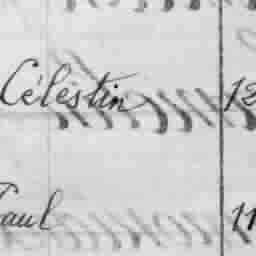 Célèstin 12
Paul 11